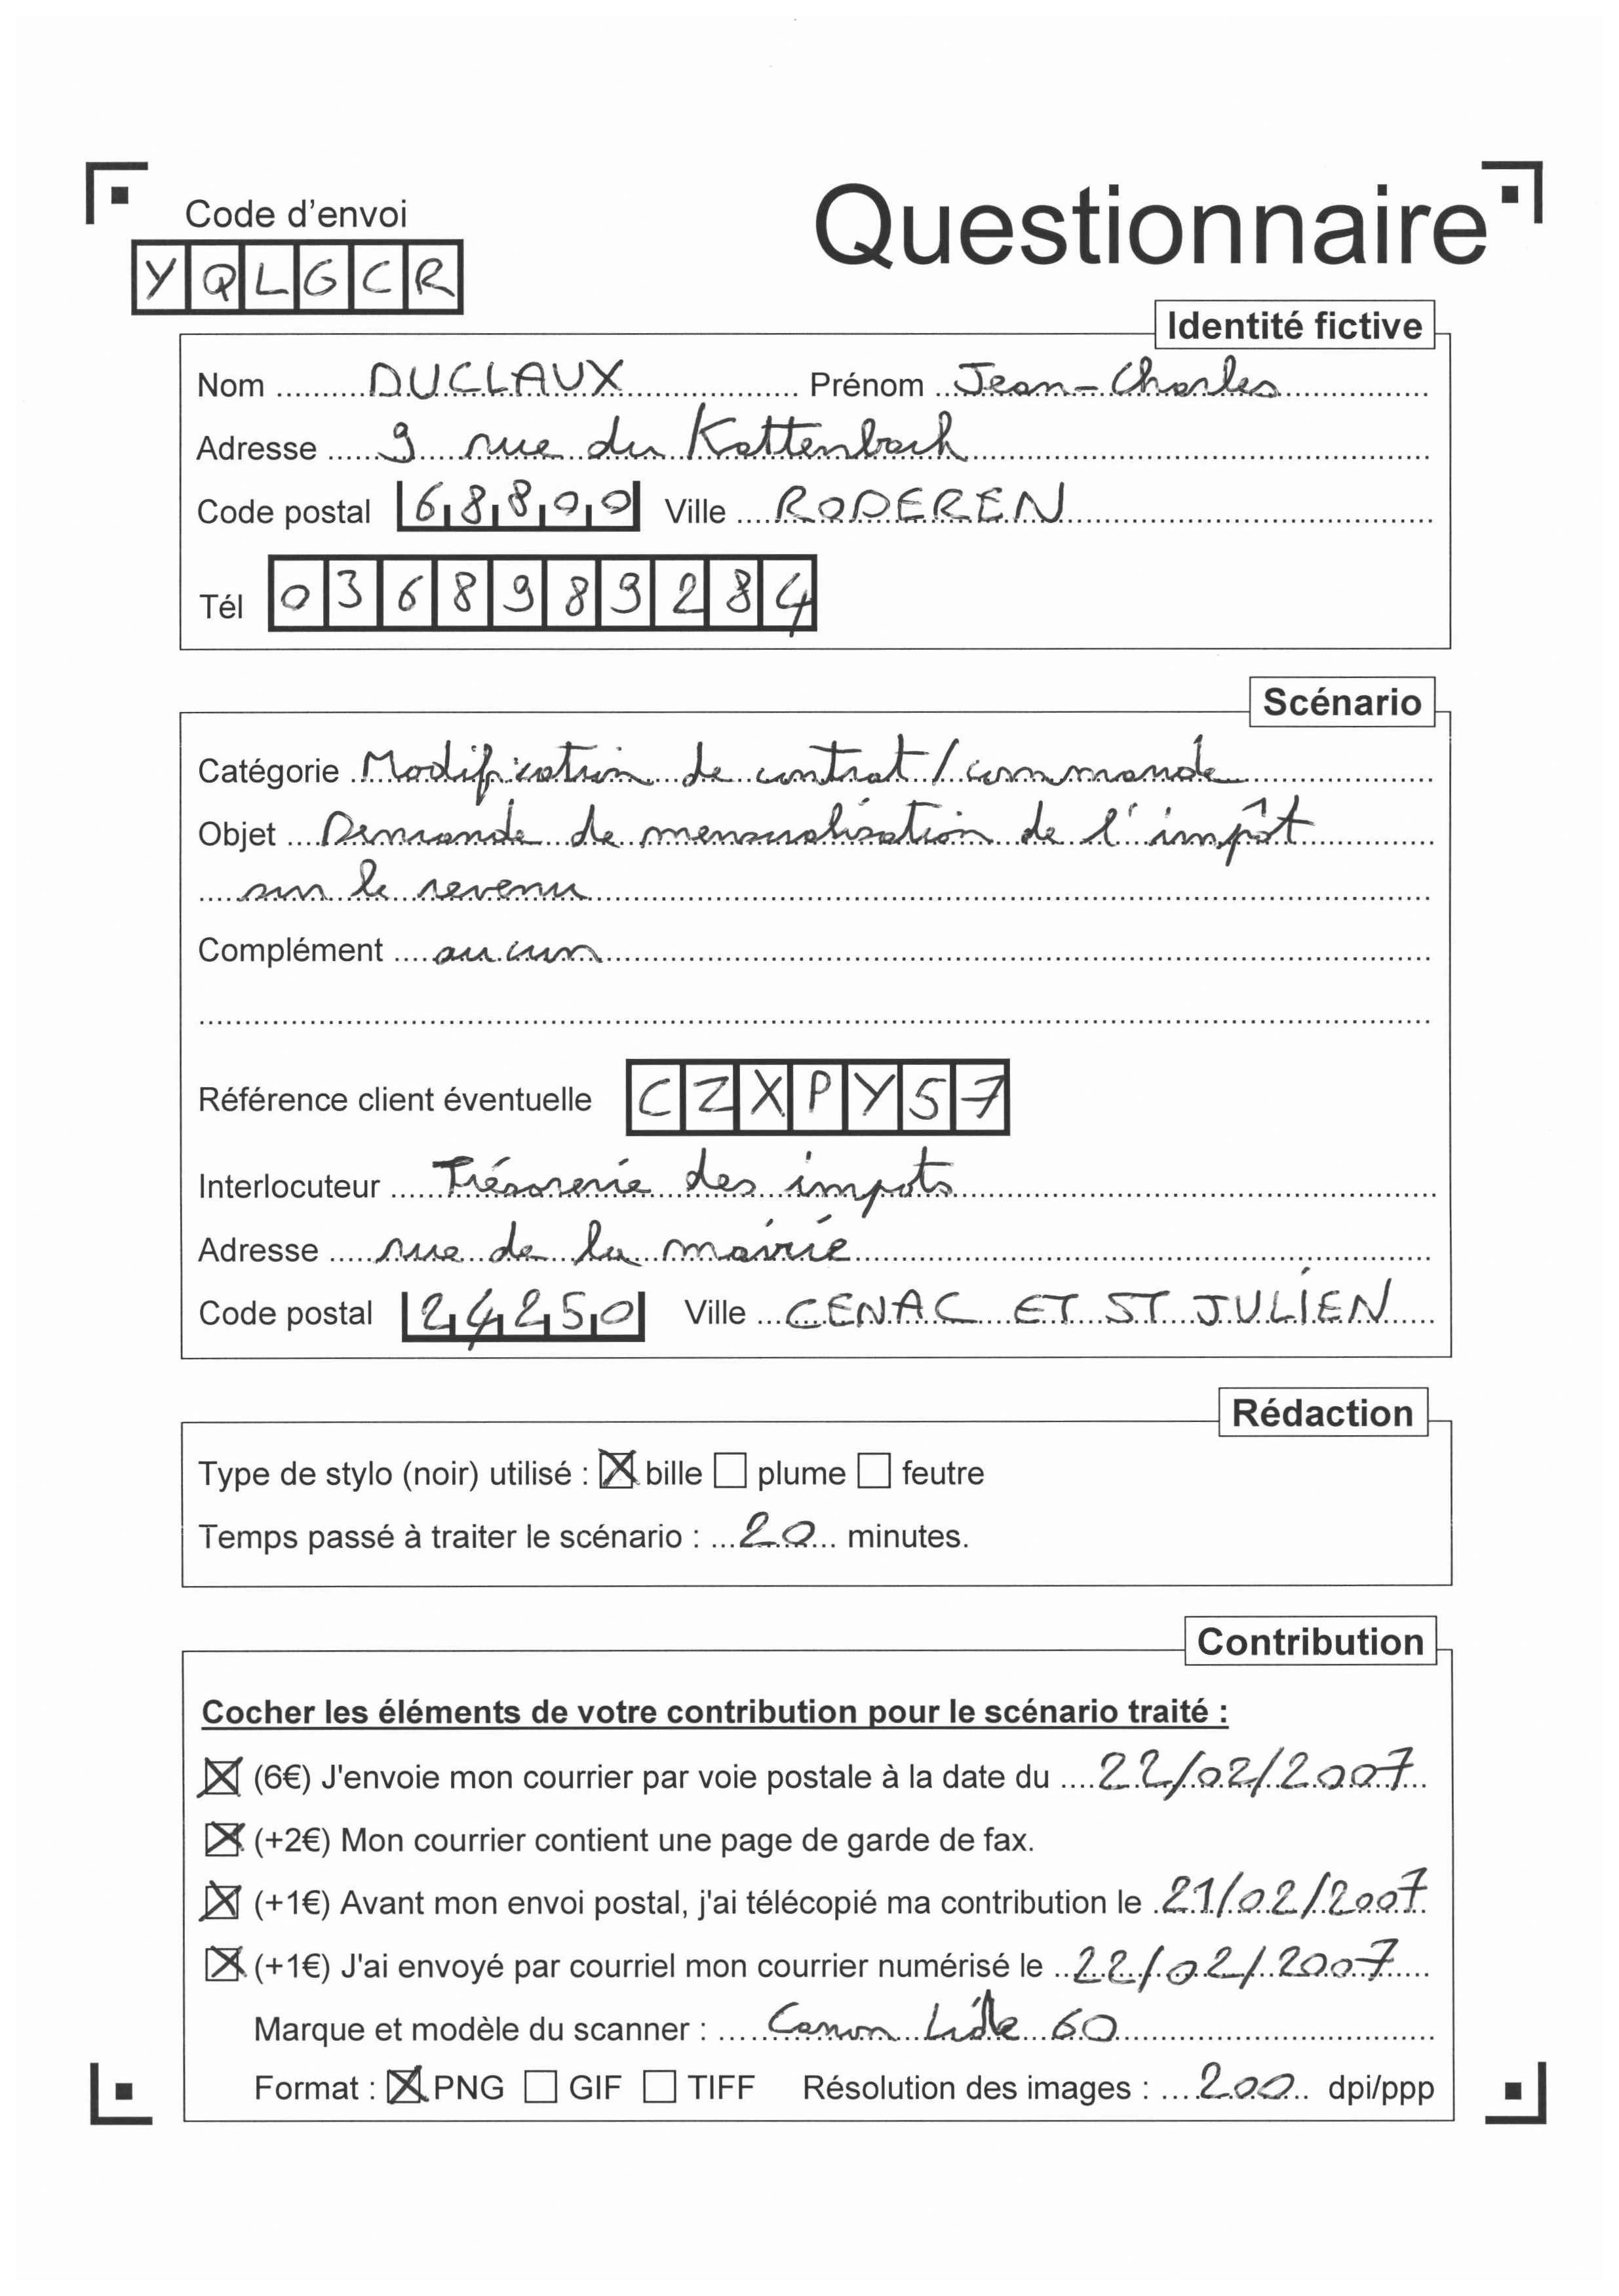 Questionnaire
Code d'envoi
YQLGCR
Identité fictive
Nom DUCLAUX Prénom Jean-Charles
Adresse 9 rue du Kattenbach
Code postal 68800 Ville RODEREN
Tél 0368989284
Scénario
Catégorie Modification de contrat / commande
Objet Demande de mensualisation de l'impôt
sur le revenu
Complément aucun
Référence client éventuelle CZXPY57
Interlocuteur Trésorerie des impots
Adresse rue de la mairie
Code postal 24250 Ville CENAC ET ST JULIEN
Rédaction
Type de stylo (noir) utilisé : bille plume feutre
Temps passé à traiter le scénario : 20 minutes.
Contribution
Cocher les éléments de votre contribution pour le scénario traité :
(6€) J'envoie mon courrier par voie postale à la date du 22/02/2007
(+2€) Mon courrier contient une page de garde de fax.
(+1€) Avant mon envoi postal, j'ai télécopié ma contribution le 21/02/2007
(+1€) J'ai envoyé par courriel mon courrier numérisé le 22/02/2007
Marque et modèle du scanner : Canon Lide 60
Format : PNG GIF TIFF Résolution des images : 200 dpi/ppp